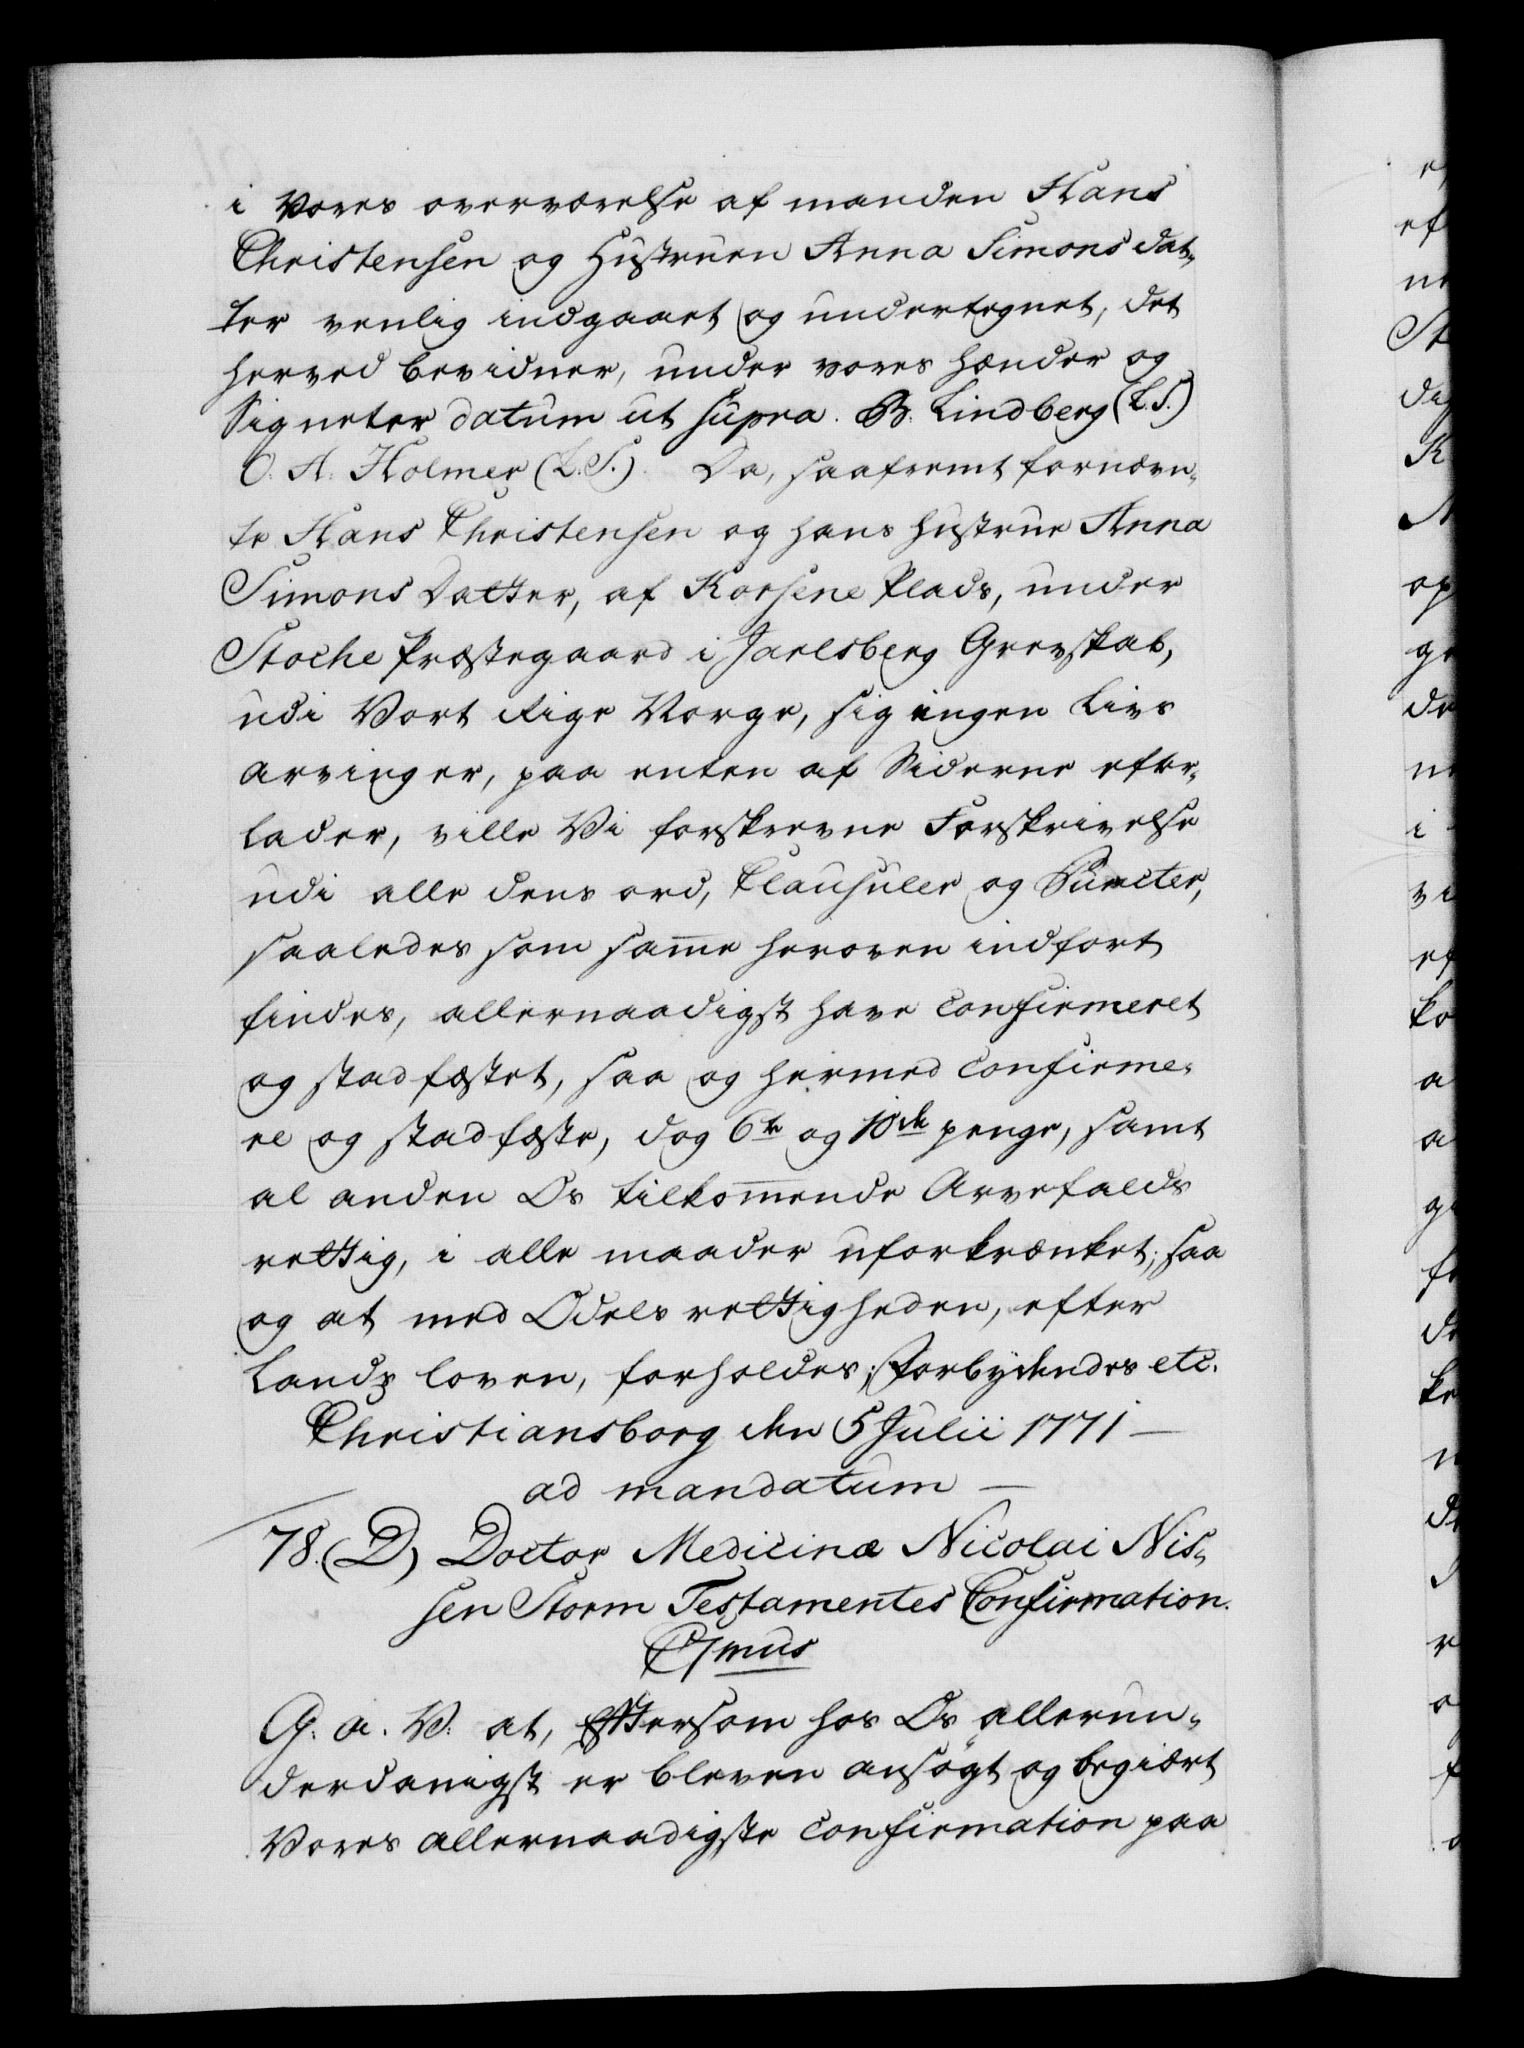 i Vores overværelse af manden Hans
Christensen og Hustruen Anna Simons dat-
ter venlig indgaaet og undertegnet, det
herved bevidner, under vores hænder og
Signeter datum ut supra. B. Lindberg (L.S.)
O. A. Holmer (L.S.). Da, saafremt fornævn-
te Hans Christensen og hans Hustrue Anna
Simons Datter, af Korsene Plads, under
Stoche Præstegaard i Jarlsberg Grevskab,
udi Vort Rige Norge, sig ingen Livs
arvinger, paa enten af Siderne efter-
lader, ville Vi forskrevne Forskrivelse
udi alle dens ord, Clausuler og Puncter,
saaledes som same heroven indført
findes, allernaadigst have confirmeret
og stadfæstet, saa og hermed confirme-
re og stadfæste, dog 6te og 10de penge, samt
al anden Os tilkomende Arvefalds
rettig, i alle maader uforkrænket; saa
og at med Odels rettigheden, efter
Lands loven, forholdes; Forbydendes etc.
Christiansborg den 5 Julii 1771 —
ad mandatum —
78. (D) Doctor Medicinæ Nicolai Nis-
sen Storm Testamentes Confirmation.
G. a. V. at, Eftersom hos Os allerun-
derdanigst er bleven ansøgt og begiært
Vores allernaadigste confirmation paa